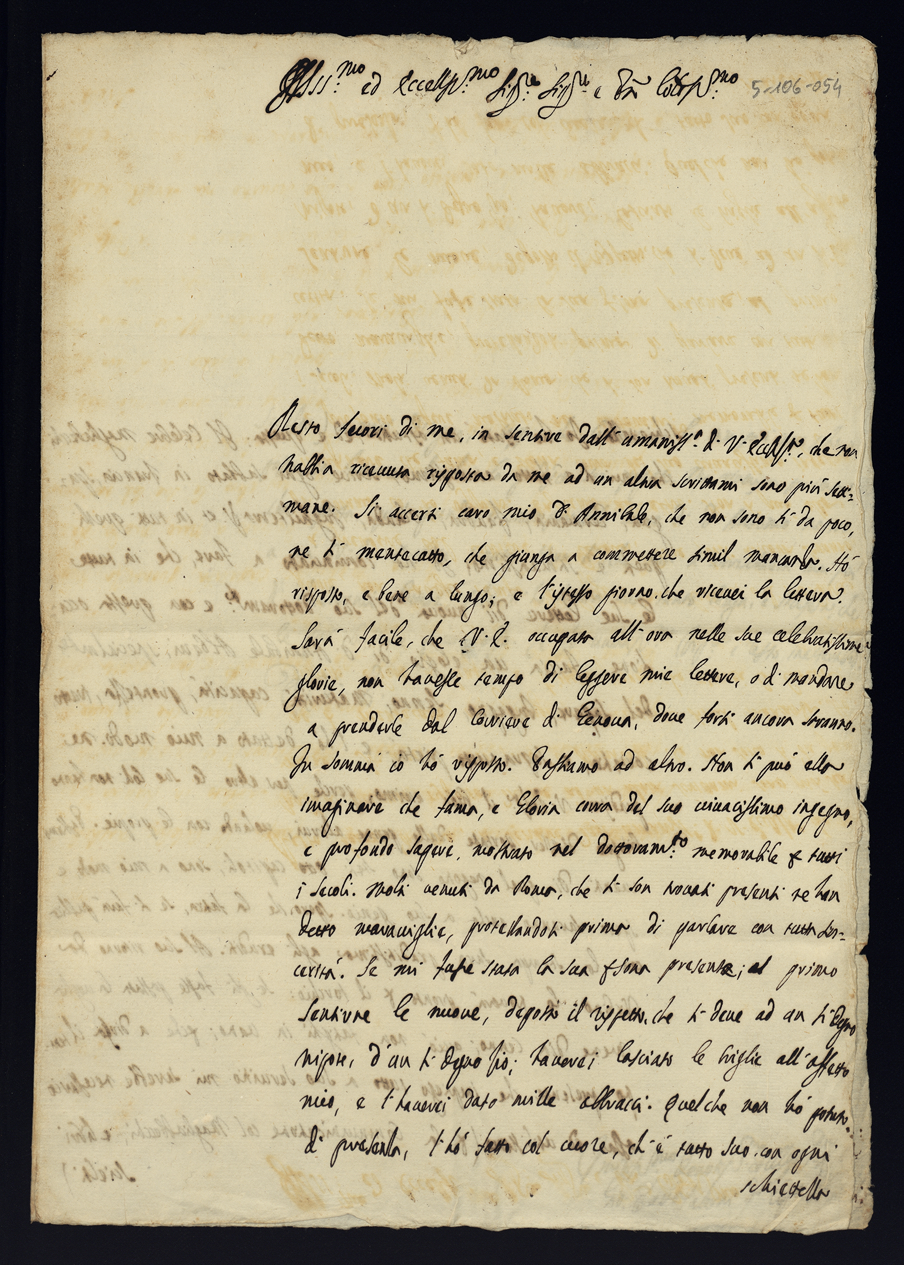 Ill.mo ed Eccell.mo Sig.re Sig.re e Pñ Colẽ.mo 5-106-054
Resto fuori di me, in sentire dall' umaniss.a di V. Eccell.a, che non
habbia ricevuta risposta da me ad un altra scrittami sono più setti=
mane. Si accerti caro mio D. Annibale, che non sono sì da poco,
ne sì mentecatto, che giunga a commettere simil mancanza. Hò
risposto, e bene a lungo; e l'istesso giorno, che ricevei la lettera.
Sarà facile, che V. E. occupata all' ora nelle sue celebratissime
glorie, non havesse tempo di leggere mie lettere, o di mandare
a prenderle dal Corriere di Genova, dove forsi ancora stranno.
In somma io hò risposto. Passiamo ad altro. Non si può ella
imaginare che fama, e Gloria corra del suo vivacissimo ingegno,
e profondo sapere, mostrato nel dottoram.to memorabile ꝑ tutti
i secoli. Molti venuti da Roma, che si son trovati presenti ne han
detto maraviglie, protestandosi prima di parlare con tutta sin=
cerità. Se mi fusse stata la sua ꝑsona presente, al primo
sentirne le nuove, deposto il rispetto, che si deve ad un sì degno
nipote, d'un sì degno Zio; haverei lasciato le briglie all' affetto
mio, e l'haverei dato mille abbracci. Quel che non hò potuto
di presenza, l'hò fatto col cuore, ch'è tutto suo con ogni
schiettezza